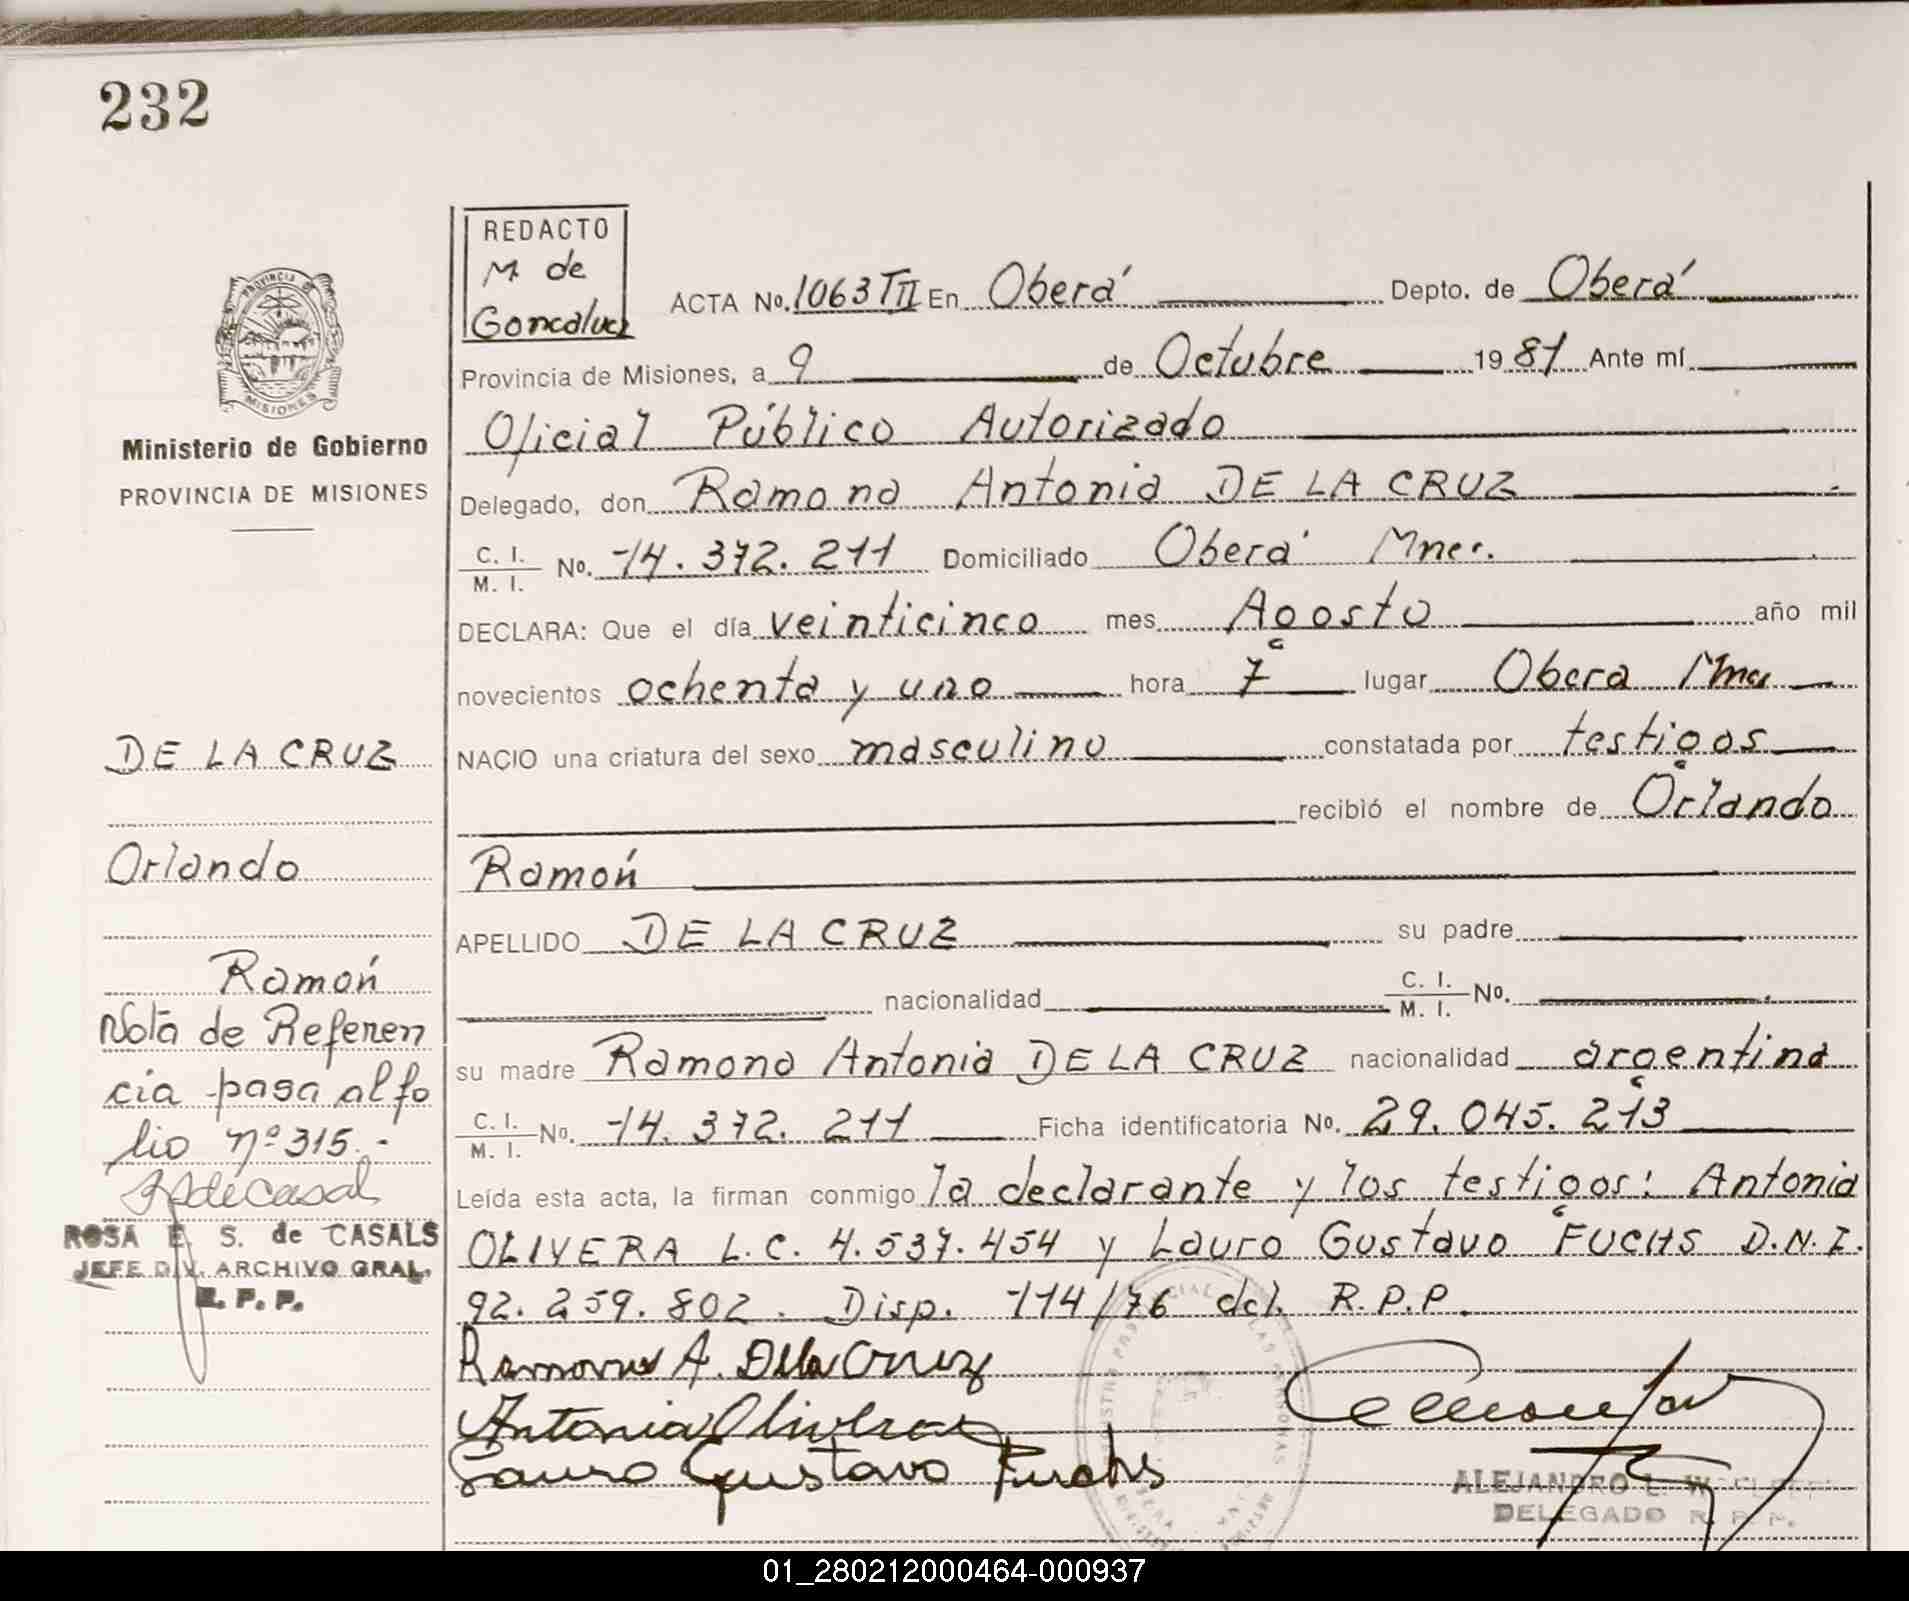 232
REDACTO
M. de
Goncalvez
PROVINCIA DE
MISIONES
Ministerio de Gobierno
PROVINCIA DE MISIONES
ACTA No. 1063 TII En Oberá Depto. de Oberá
Provincia de Misiones, a 9 de Octubre 1981 Ante mí
Oficial Público Autorizado
Delegado, don Ramona Antonia DE LA CRUZ
C. I. / M. I. No. 14.372.211 Domiciliado Oberá Mnes.
DECLARA: Que el día veinticinco mes Agosto año mil
novecientos ochenta y uno hora 7 lugar Obera Mnes
NACIO una criatura del sexo masculino constatada por testigos
recibió el nombre de Orlando
Ramón
APELLIDO DE LA CRUZ su padre
nacionalidad C. I. / M. I. No.
su madre Ramona Antonia DE LA CRUZ nacionalidad argentina
C. I. / M. I. No. 14.372.211 Ficha identificatoria No. 29.045.213
Leída esta acta, la firman conmigo la declarante y los testigos: Antonia
OLIVERA L.C. 4.537.454 y Lauro Gustavo FUCHS D.N.I.
92.259.802. Disp. 114/76 del R.P.P.
Ramona A. De la Cruz
Antonia Olivera
Lauro Gustavo Fuchs
ALEJANDRO L.
DELEGADO R. P. P.
DE LA CRUZ
Orlando
Ramón
Nota de Referen
cia pasa al fo
lio nº 315.-
ROSA E. S. de CASALS
JEFE DIV. ARCHIVO GRAL.
R. P. P.
01_280212000464-000937